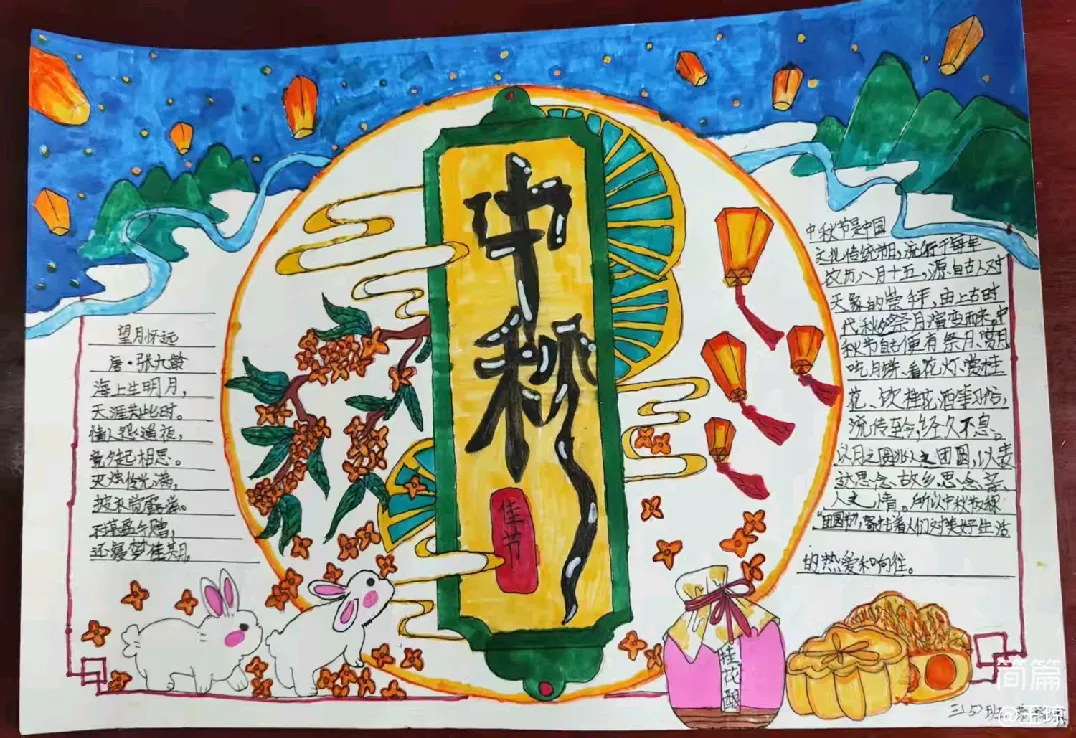 中秋
佳节
望月怀远
唐·张九龄
海上生明月，
天涯共此时。
情人怨遥夜，
竟夕起相思。
灭烛怜光满，
披衣觉露滋。
不堪盈手赠，
还寝梦佳期。
中秋节是中国
文化传统节日，流行于每年
农历八月十五，源自古人对
天象的崇拜，由上古时
代秋夕祭月演变而来，中
秋节自古便有祭月、赏月、
吃月饼、看花灯、赏桂
花、饮桂花酒等习俗，
流传至今，经久不息。
以月之圆兆人之团圆，以
思念故乡，思念亲
人之情。所以中秋节
"团圆节"，寄托着人们对美好生活
的热爱和向往。
桂花酿
班
简篇